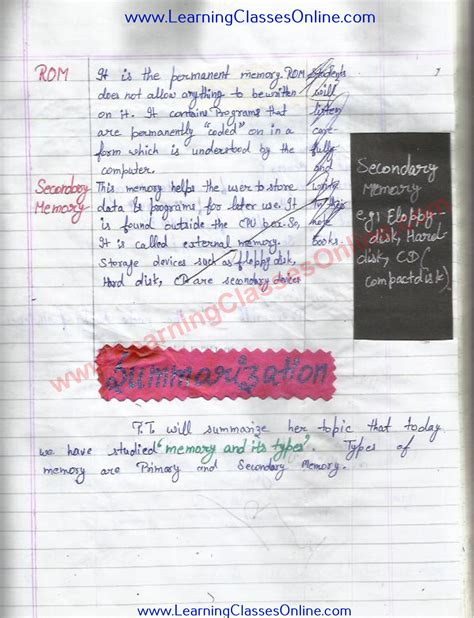 www.LearningClassesOnline.com
ROM
It is the permanent memory. ROM
does not allow anything to be written
on it. It contains Programs that
are permanently "coded" on in a
form which is understood by the
computer.
Secondary
Memory
This memory helps the user to store
data & programs for later use. It
is found outside the CPU box. So,
It is called external memory.
Storage devices such as floppy disk,
Hard disk, CD are secondary devices
students
will
listen
care
fully
and
write
in their
note
books.
Secondary
Memory
e.g: Floppy
disk, Hard
disk, CD (
compact disk)
www.LearningClassesOnline.com
Summarization
P.T. will summarize her topic that today
we have studied "memory and its types". Types of
memory are Primary and Secondary Memory.
www.LearningClassesOnline.com